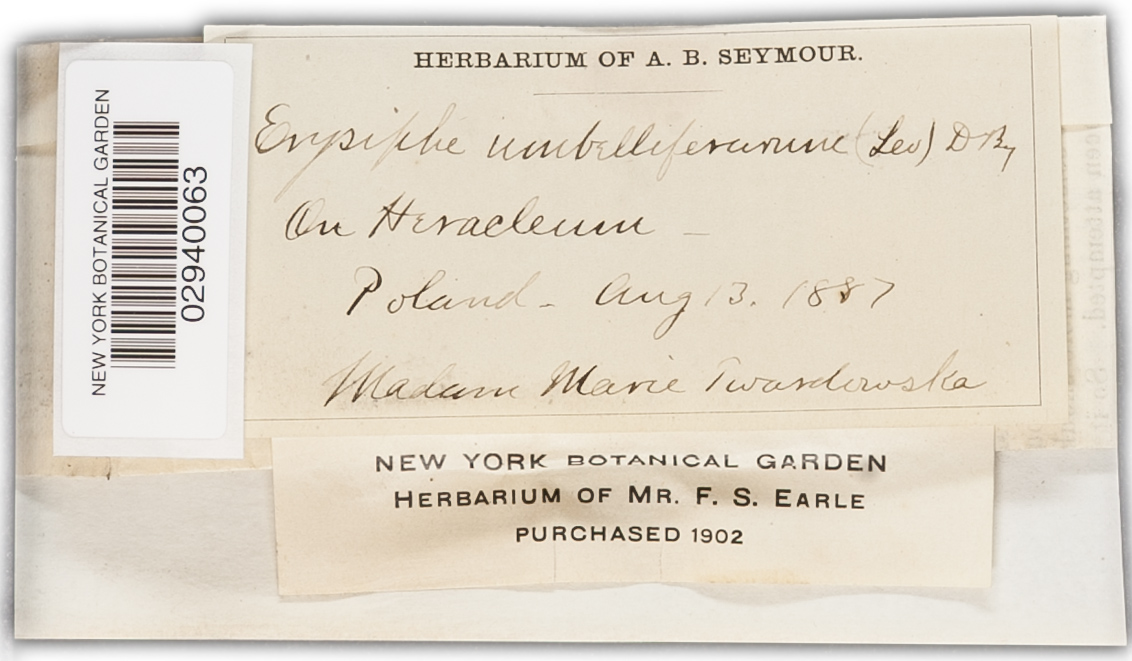 HERBARIUM OF A. B. SEYMOUR.
Erysiphe umbelliferarum (Lev) DBy
On Heracleum –
Poland – Aug 13. 1887
Madam Marie Twardowska
NEW YORK BOTANICAL GARDEN
02940063
NEW YORK BOTANICAL GARDEN
HERBARIUM OF MR. F. S. EARLE
PURCHASED 1902